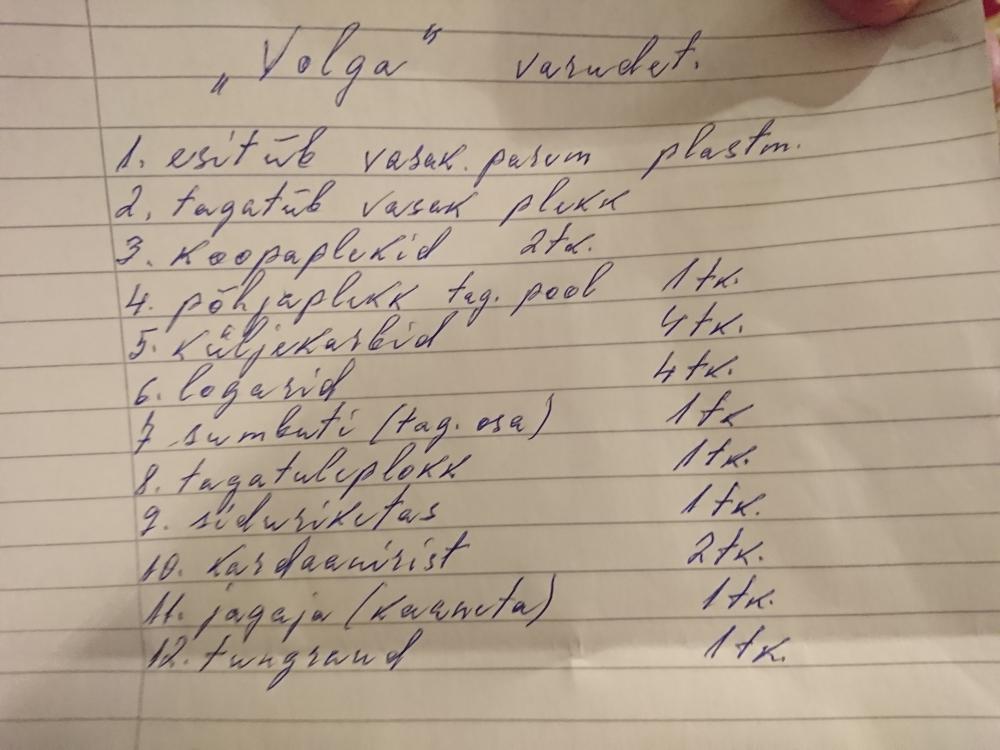 „Volga" varudet.
1. esitiib vasak. parem plastm.
2. tagatiib vasak plekk
3. koopaplekid 2tk.
4. põhjaplekk tag. pool 1tk.
5. küljekarbid 4tk.
6. logarid 4tk.
7 summbuti (tag. osa) 1tk
8. tagatuleplokk 1tk.
9. siduriketas 1tk.
10. kardaanirist 2tk.
11. jagaja (kaaneta) 1tk.
12. tungraud 1tk.